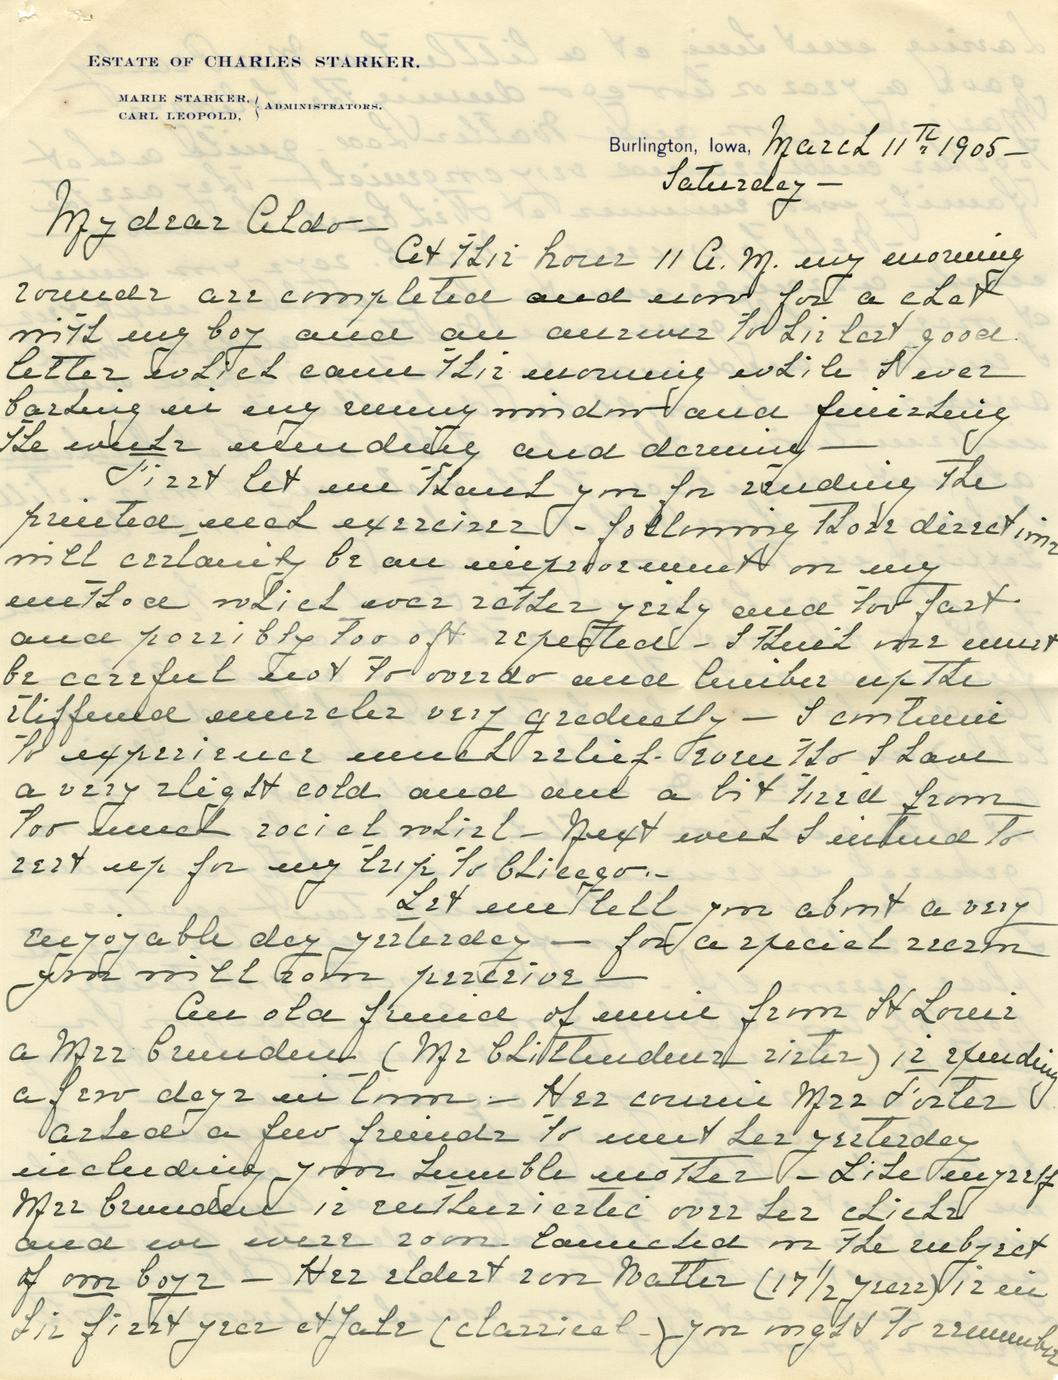 ESTATE OF CHARLES STARKER.
MARIE STARKER,
CARL LEOPOLD, } ADMINISTRATORS.
Burlington, Iowa, March 11th 1905 —
Saturday —
My dear Aldo —
At this hour 11 A. M. my morning
rounds are completed and now for a chat
with my boy and an answer to his last good
letter which came this morning while I was
basking in my sunny window and finishing
the week's mending and darning —
First let me thank you for sending the
printed neck exercises - following those directions
will certainly be an improvement on my
method which was rather jerky and too fast
and possibly too oft repeated - I think one must
be careful not to overdo and limber up the
stiffened muscles very gradually — I continue
to experience much relief. Even tho I have
a very slight cold and am a bit tired from
too much social whirl - Next week I intend to
rest up for my trip to Chicago. -
Let me tell you about a very
enjoyable day yesterday — for a special reason
you will soon perceive —
An old friend of mine from St Louis
a Mrs Brunden (Mr Chittendens sister) is spending
a few days in town — Her cousin Mrs Foster
asked a few friends to meet her yesterday
including your humble mother - Like myself
Mrs Brunden is enthusiastic over her chicks
and we were soon launched on the subject
of our boys — Her eldest son Walter (17 1/2 years) is in
his first year at Yale (classical -) you ought to remember